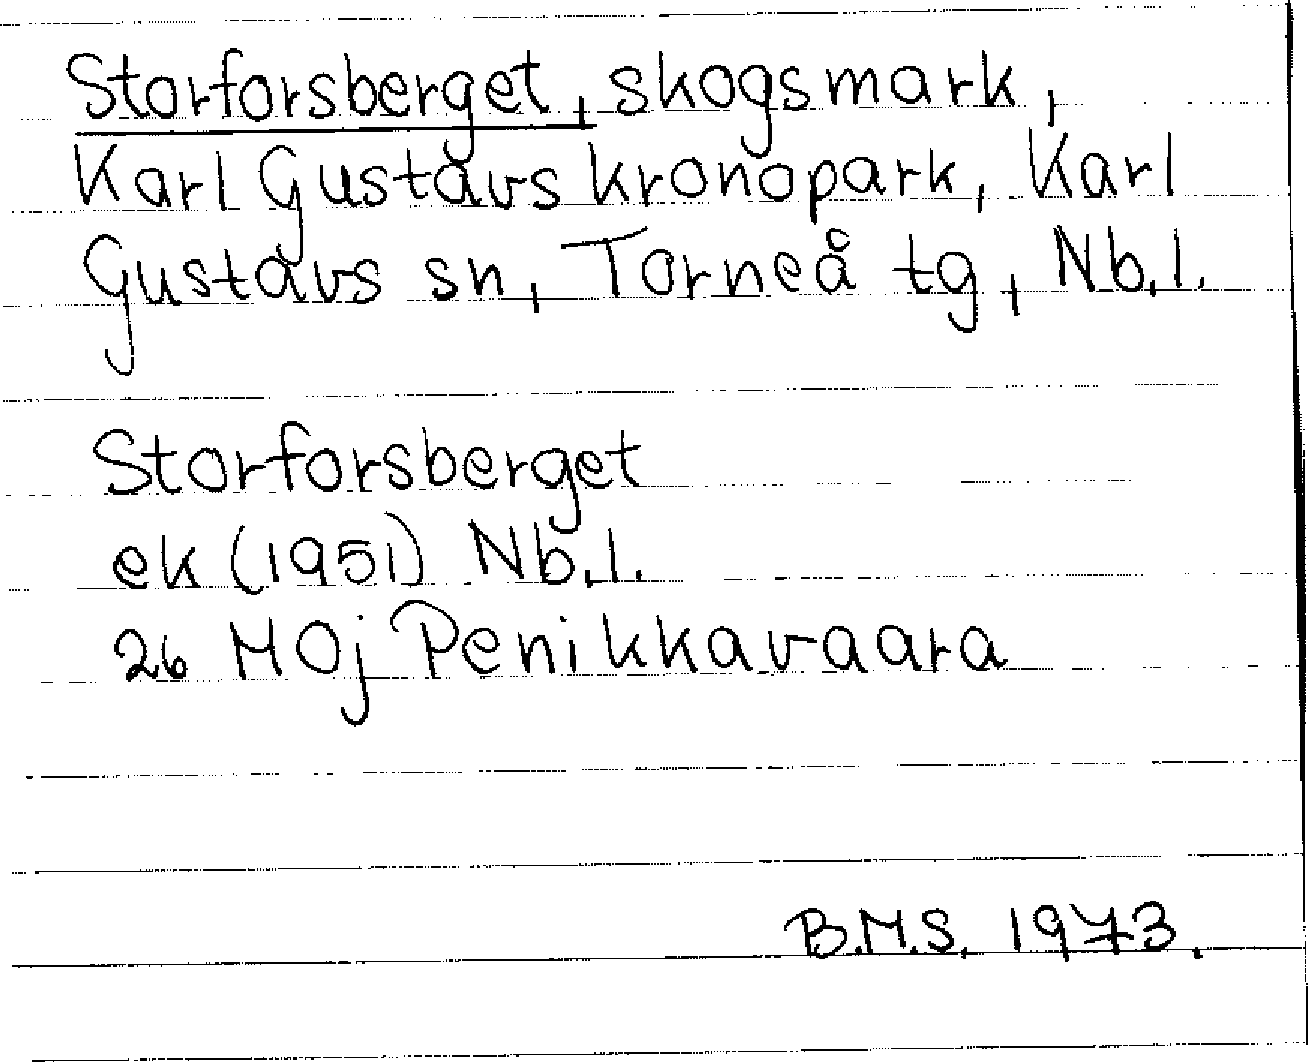 Storforsberget, skogsmark,
Karl Gustavs kronopark, Karl
Gustavs sn, Torneå tg, Nb.l.
Storforsberget
ek (1951) Nb.l.
26 MOj Penikkavaara
B.M.S. 1973.